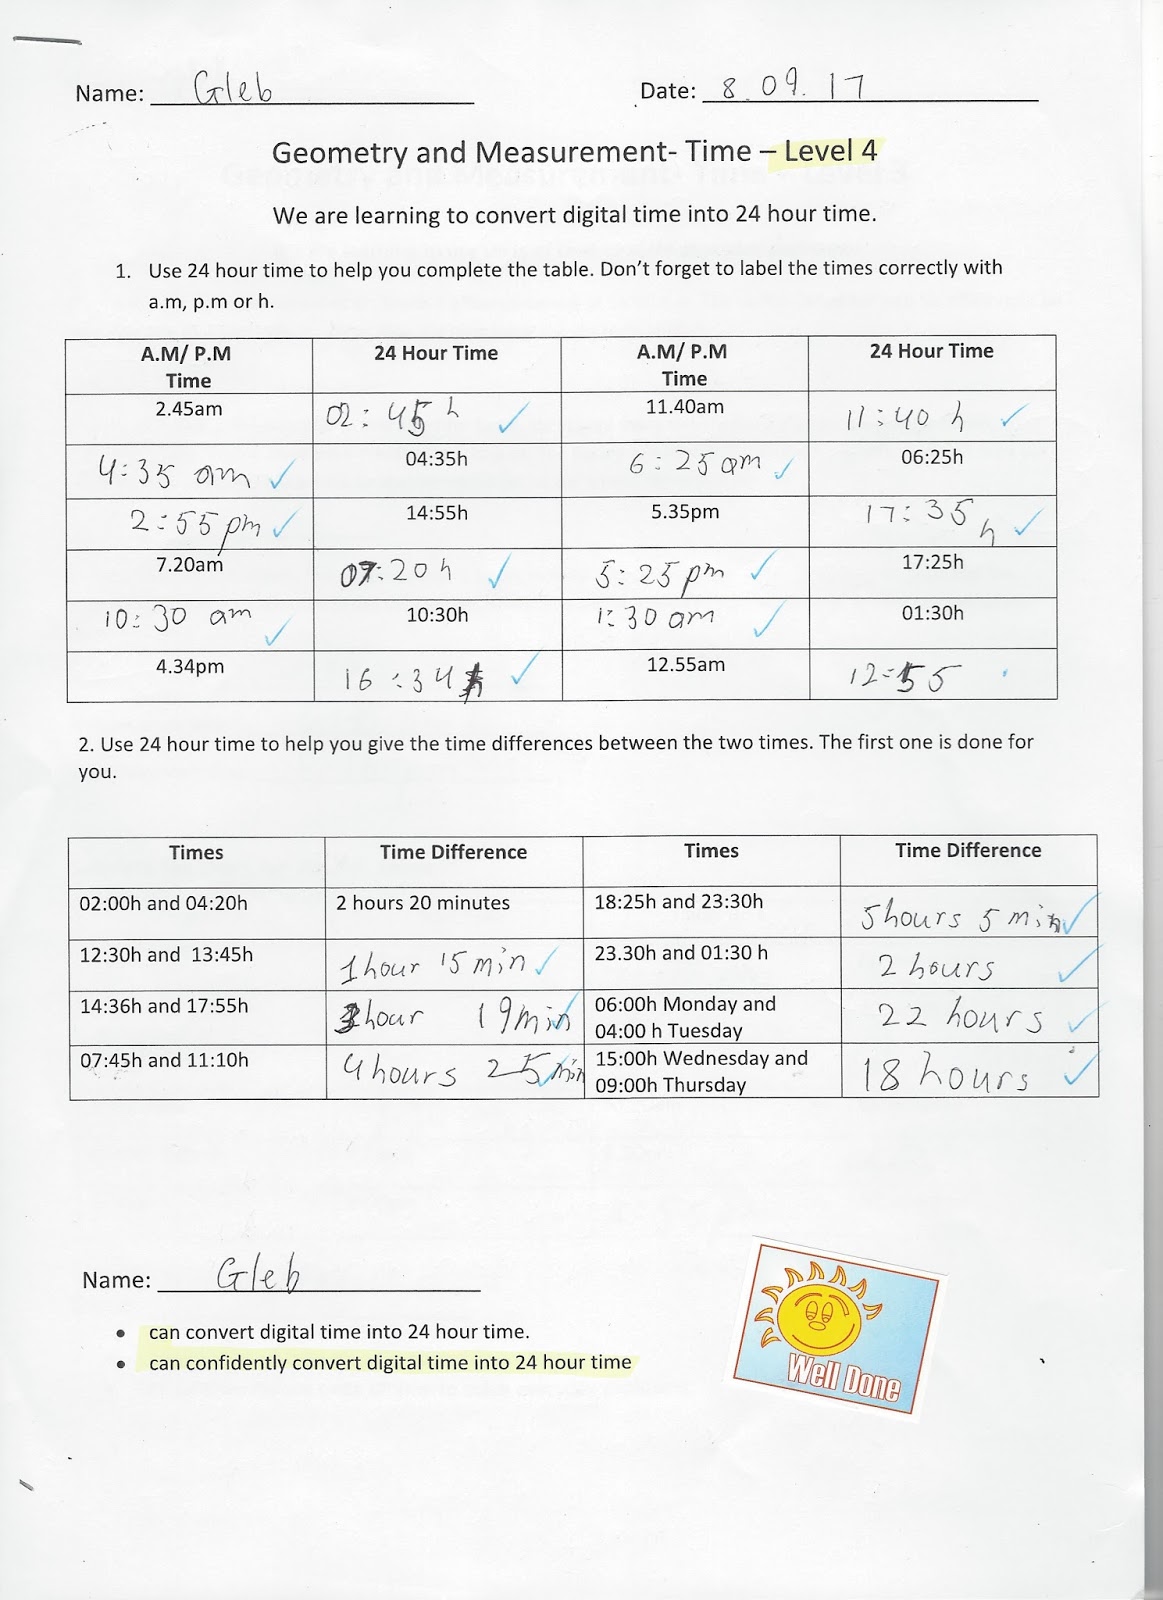 Name: Gleb Date: 8.09.17
Geometry and Measurement- Time – Level 4
We are learning to convert digital time into 24 hour time.
1. Use 24 hour time to help you complete the table. Don't forget to label the times correctly with
a.m, p.m or h.
A.M/ P.M Time 24 Hour Time A.M/ P.M Time 24 Hour Time
2.45am 02:45 h 11.40am 11:40 h
4:35 am 04:35h 6:25am 06:25h
2:55pm 14:55h 5.35pm 17:35 h
7.20am 07:20h 5:25pm 17:25h
10:30 am 10:30h 1:30 am 01:30h
4.34pm 16:34h 12.55am 12:55
2. Use 24 hour time to help you give the time differences between the two times. The first one is done for
you.
Times Time Difference Times Time Difference
02:00h and 04:20h 2 hours 20 minutes 18:25h and 23:30h 5hours 5 min
12:30h and 13:45h 1hour 15 min 23.30h and 01:30 h 2 hours
14:36h and 17:55h 3hour 19min 06:00h Monday and
04:00 h Tuesday 22 hours
07:45h and 11:10h 4hours 25min 15:00h Wednesday and
09:00h Thursday 18 hours
Name: Gleb
• can convert digital time into 24 hour time.
• can confidently convert digital time into 24 hour time
Well Done